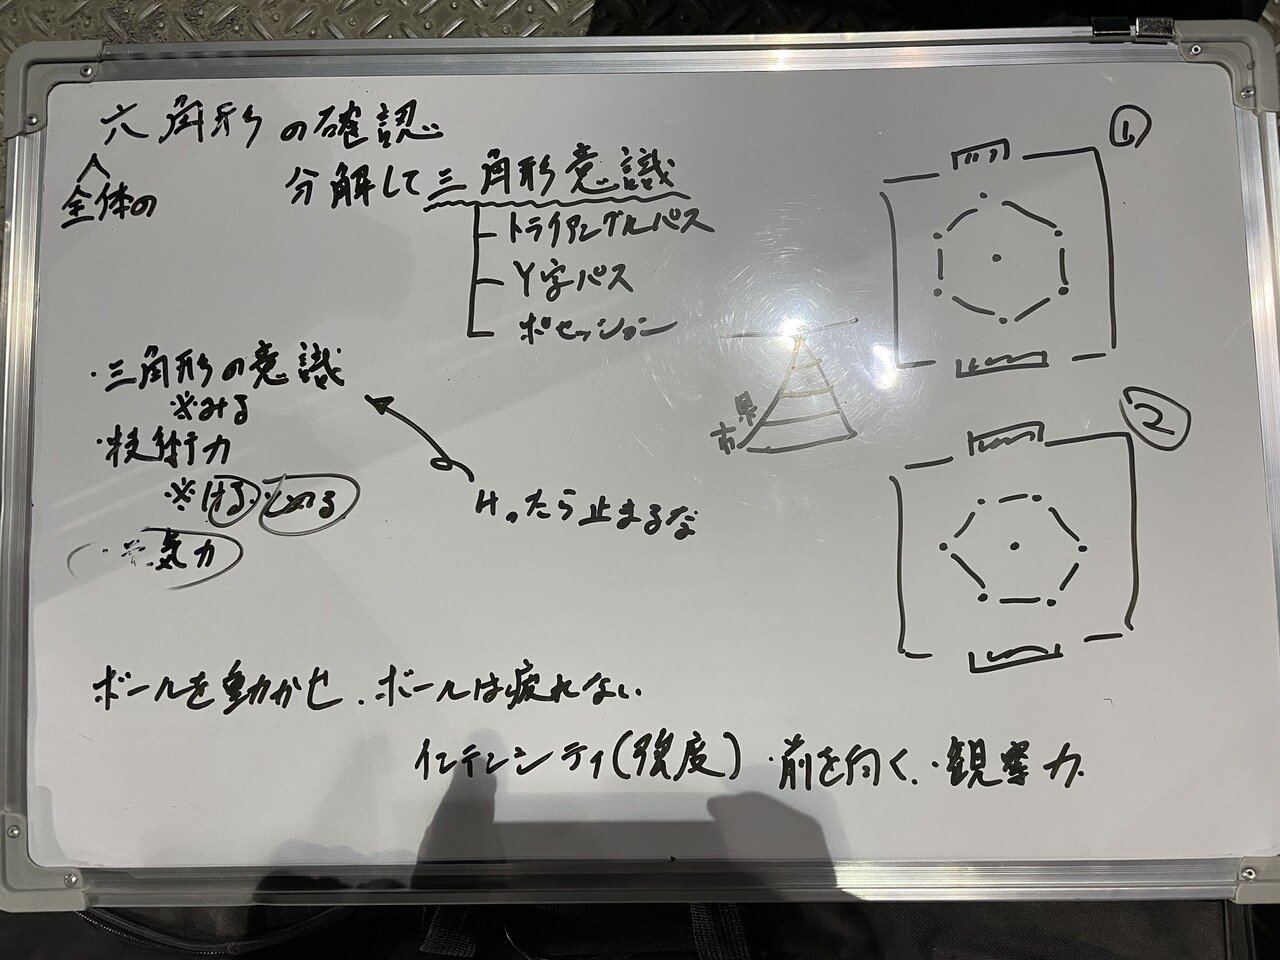 六角形の確認
全体の
分解して三角形意識
トライアングルパス
Y字パス
ポゼッション
①
・三角形の意識
※みる
・技術力
※ける・とめる
気力
たら止まるな
県
市
②
ボールを動かせ、ボールは疲れない
インテンシティ(強度)・前を向く、・観察力